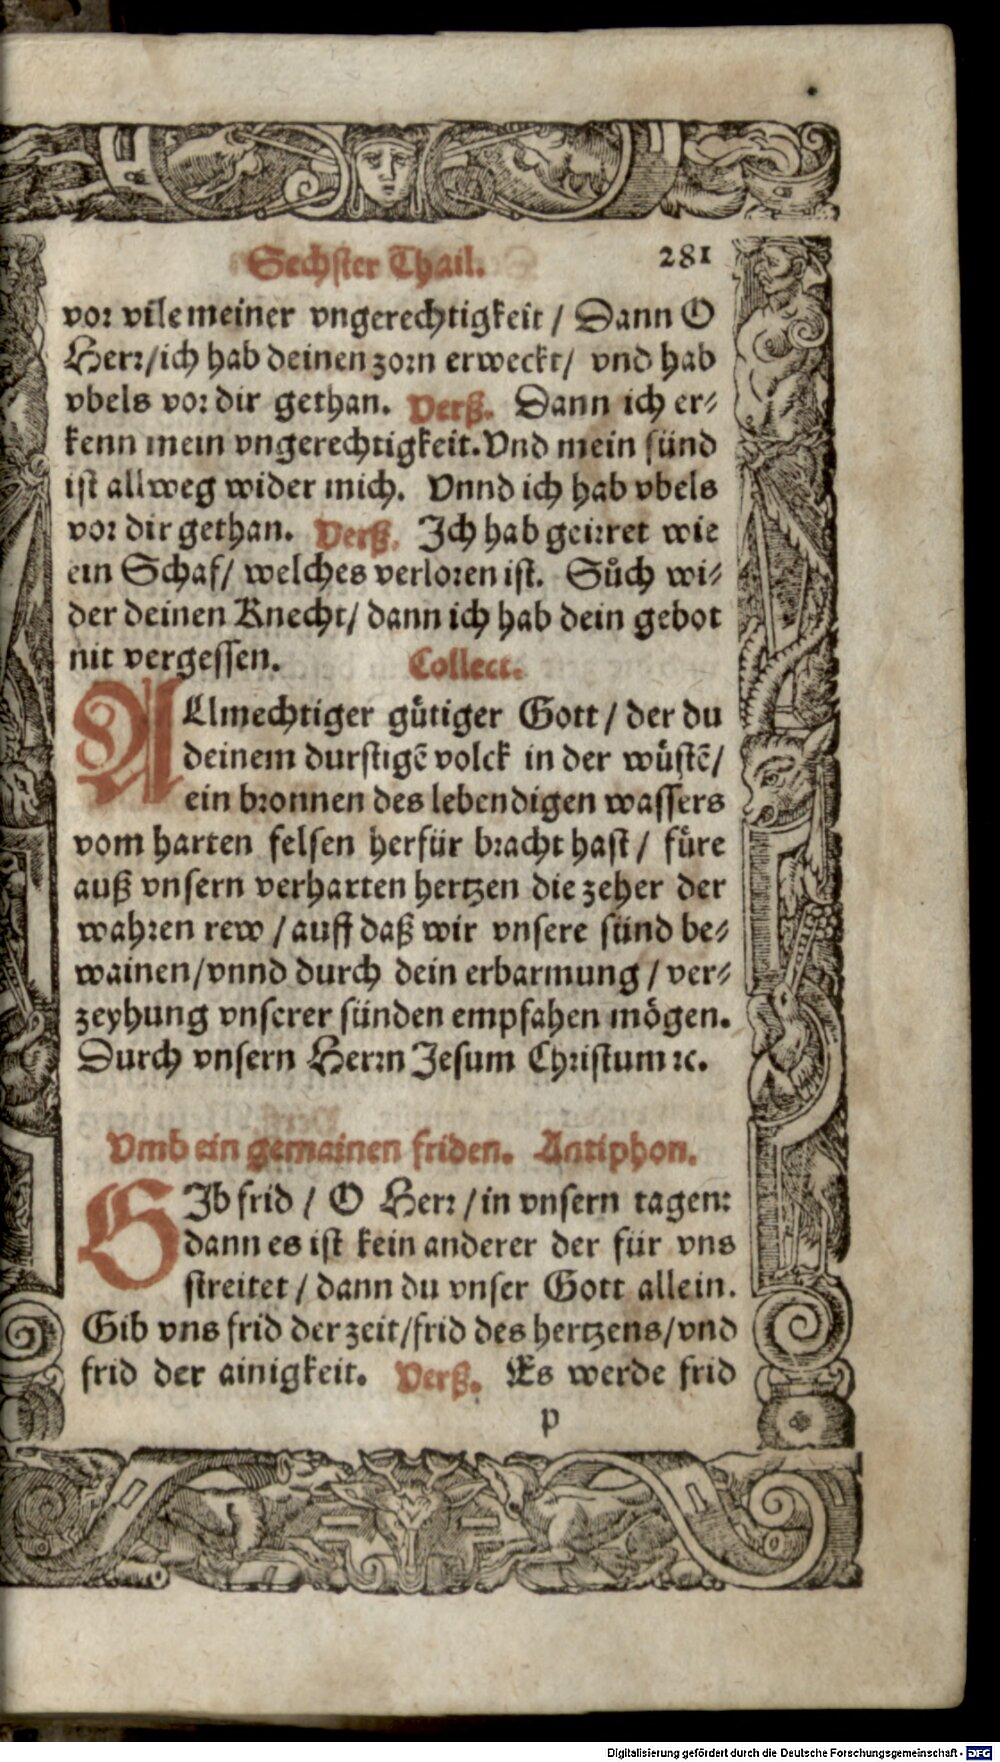 Sechster Thail. 281
vor vile meiner vngerechtigkeit / Dann O
Herr/ich hab deinen zorn erweckt/ vnd hab
vbels vor dir gethan. Verß. Dann ich er⸗
kenn mein vngerechtigkeit. Vnd mein sünd
ist allweg wider mich. Vnnd ich hab vbels
vor dir gethan. Verß. Ich hab geirret wie
ein Schaf/ welches verloren ist. Suͤch wi⸗
der deinen Knecht/ dann ich hab dein gebot
nit vergessen. Collect.
ALlmechtiger guͤtiger Gott / der du
deinem durstigē volck in der wuͤstē/
ein bronnen des lebendigen wassers
vom harten felsen herfür bracht hast / fuͤre
auß vnsern verharten hertzen die zeher der
wahren rew / auff daß wir vnsere sünd be⸗
wainen/vnnd durch dein erbarmung / ver⸗
zeyhung vnserer sünden empfahen moͤgen.
Durch vnsern Herrn Jesum Christum ꝛc.
Vmb ein gemainen friden. Antiphon.
GIb frid / O Herr / in vnsern tagen:
dann es ist kein anderer der für vns
streitet / dann du vnser Gott allein.
Gib vns frid der zeit/frid des hertzens/vnd
frid der ainigkeit. Verß. Es werde frid
p
Digitalisierung gefördert durch die Deutsche Forschungsgemeinschaft - DFG